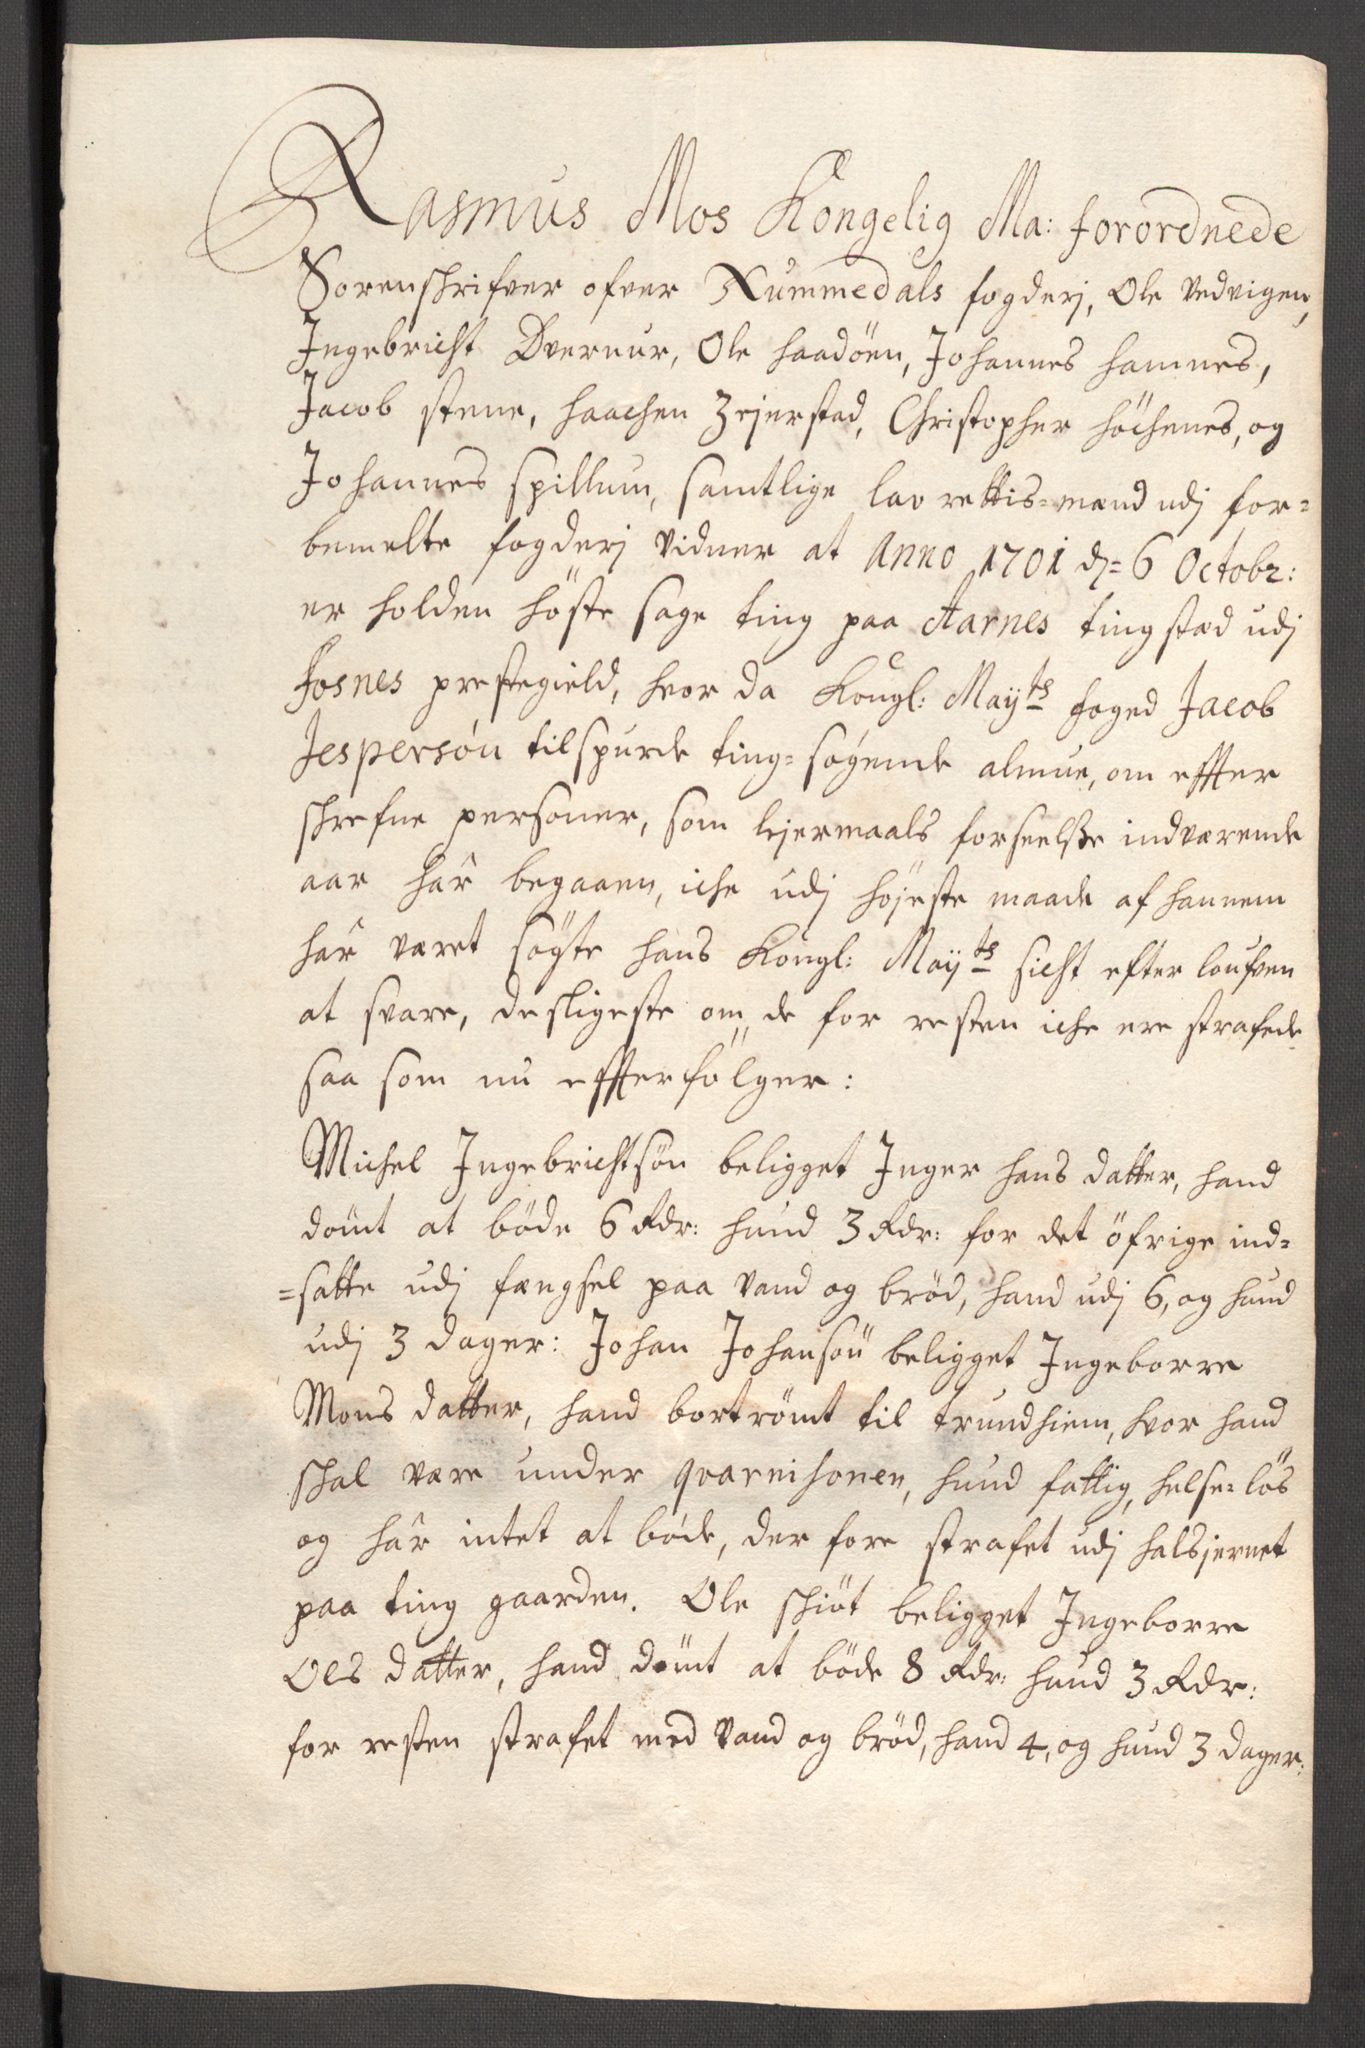 Rasmus Mos Kongelig Ma: forordnede
Sorenschrifver ofver Nummedals fogderj, Ole Vedvigen,
Ingebricht Dvernur, Ole haadöen, Johannes hamnes,
Jacob stene, haachen Zejerstad, Christopher höchenes, og
Johannes spillum, samtlige lav rettis-mænd udj for-
bemelte fogderj vidner at Anno 1701 dj= 6 Octobr:
er holden höste sage ting paa Aarnes tingstæd udj
fosnes prestegield, hvor da Kongl: Mayts foged Jacob
Jespersön tilspurde ting-søgende almue, om effter
schrefne personer, som lejermaals forseelsse indværende
aar har begaaen, iche udj höjeste maade af hannem
har været søgte hans Kongl: Mayts sicht efter loufven
at svare, desligeste om de for resten iche ere strafede
saa som nu effterfölger:
Michel Ingebrichtsön beligget Inger hans datter, hand
dömt at böde 6 Rdr: hund 3 Rdr: for det öfrige ind=
=satte udj fængsel paa vand og bröd, hand udj 6, og hund
udj 3 dager: Johan Johansön beligget Ingeborre
Mons datter, hand bortrömt til trundhiem, hvor hand
schal være under qvarnihonen, hund fattig, helse-lös
og har intet at böde, der fore strafet udj halsjernet
paa ting gaarden. Ole schiöt beligget Ingeborre
Ols datter, hand dömt at böde 8 Rdr: hund 3 Rdr:
for resten strafet med vand og bröd, hand 4, og hund 3 dager: